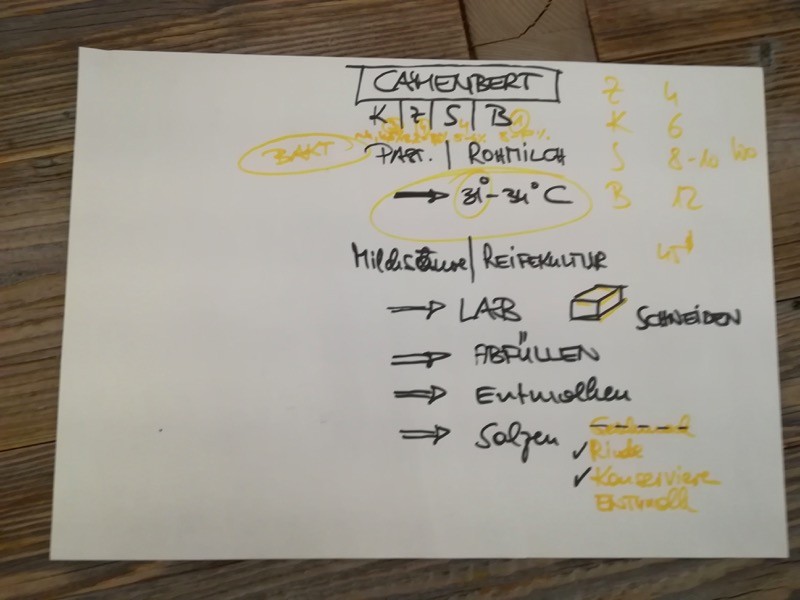 CAMEMBERT
K | Z | S | B
Z 4
K 6
BAKT PAST. | ROHMILCH
S 8-10
→ 31° - 34° C
B 12
Milchsäure | REIFEKULTUR
→ LAB SCHNEIDEN
→ ABFÜLLEN
→ Entmolken
→ Salzen
✓ Rinde
✓ Konserviere
ENTmolk